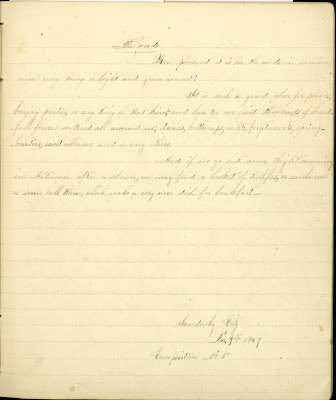 The woods
How pleasant it is in the woods in summer
when every thing is bright and green around!
It is such a grand place for
parties, or any thing of that kind, and here too we find thousands of
full flowers scattered all around us; daisies, buttercups, violets, forget-me-nots, spring-
beauties, sweet-williams and many others.
And if we go out some bright morning
in Autumn after a shower, we may find a basket of truffles, or mushrooms
as some call them, which make a very nice dish for breakfast.
Sandusky City
Nov. 9th 1869
Composition No. 5